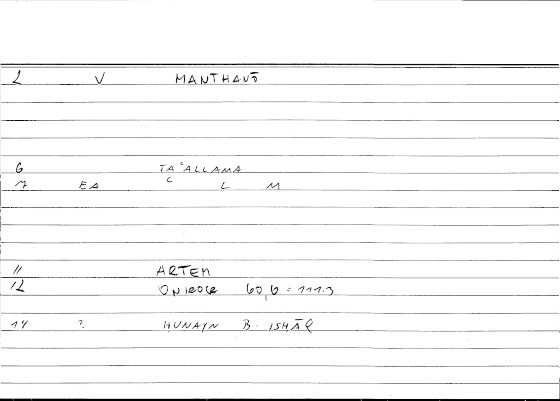 2 V MANTHANŌ
6 TAʿALLAMA
7 EA ʿ L M
11 ARTEM
12 ONIROCR 60,6 = 111.3
14 ? HUNAYN B. ISHĀQ